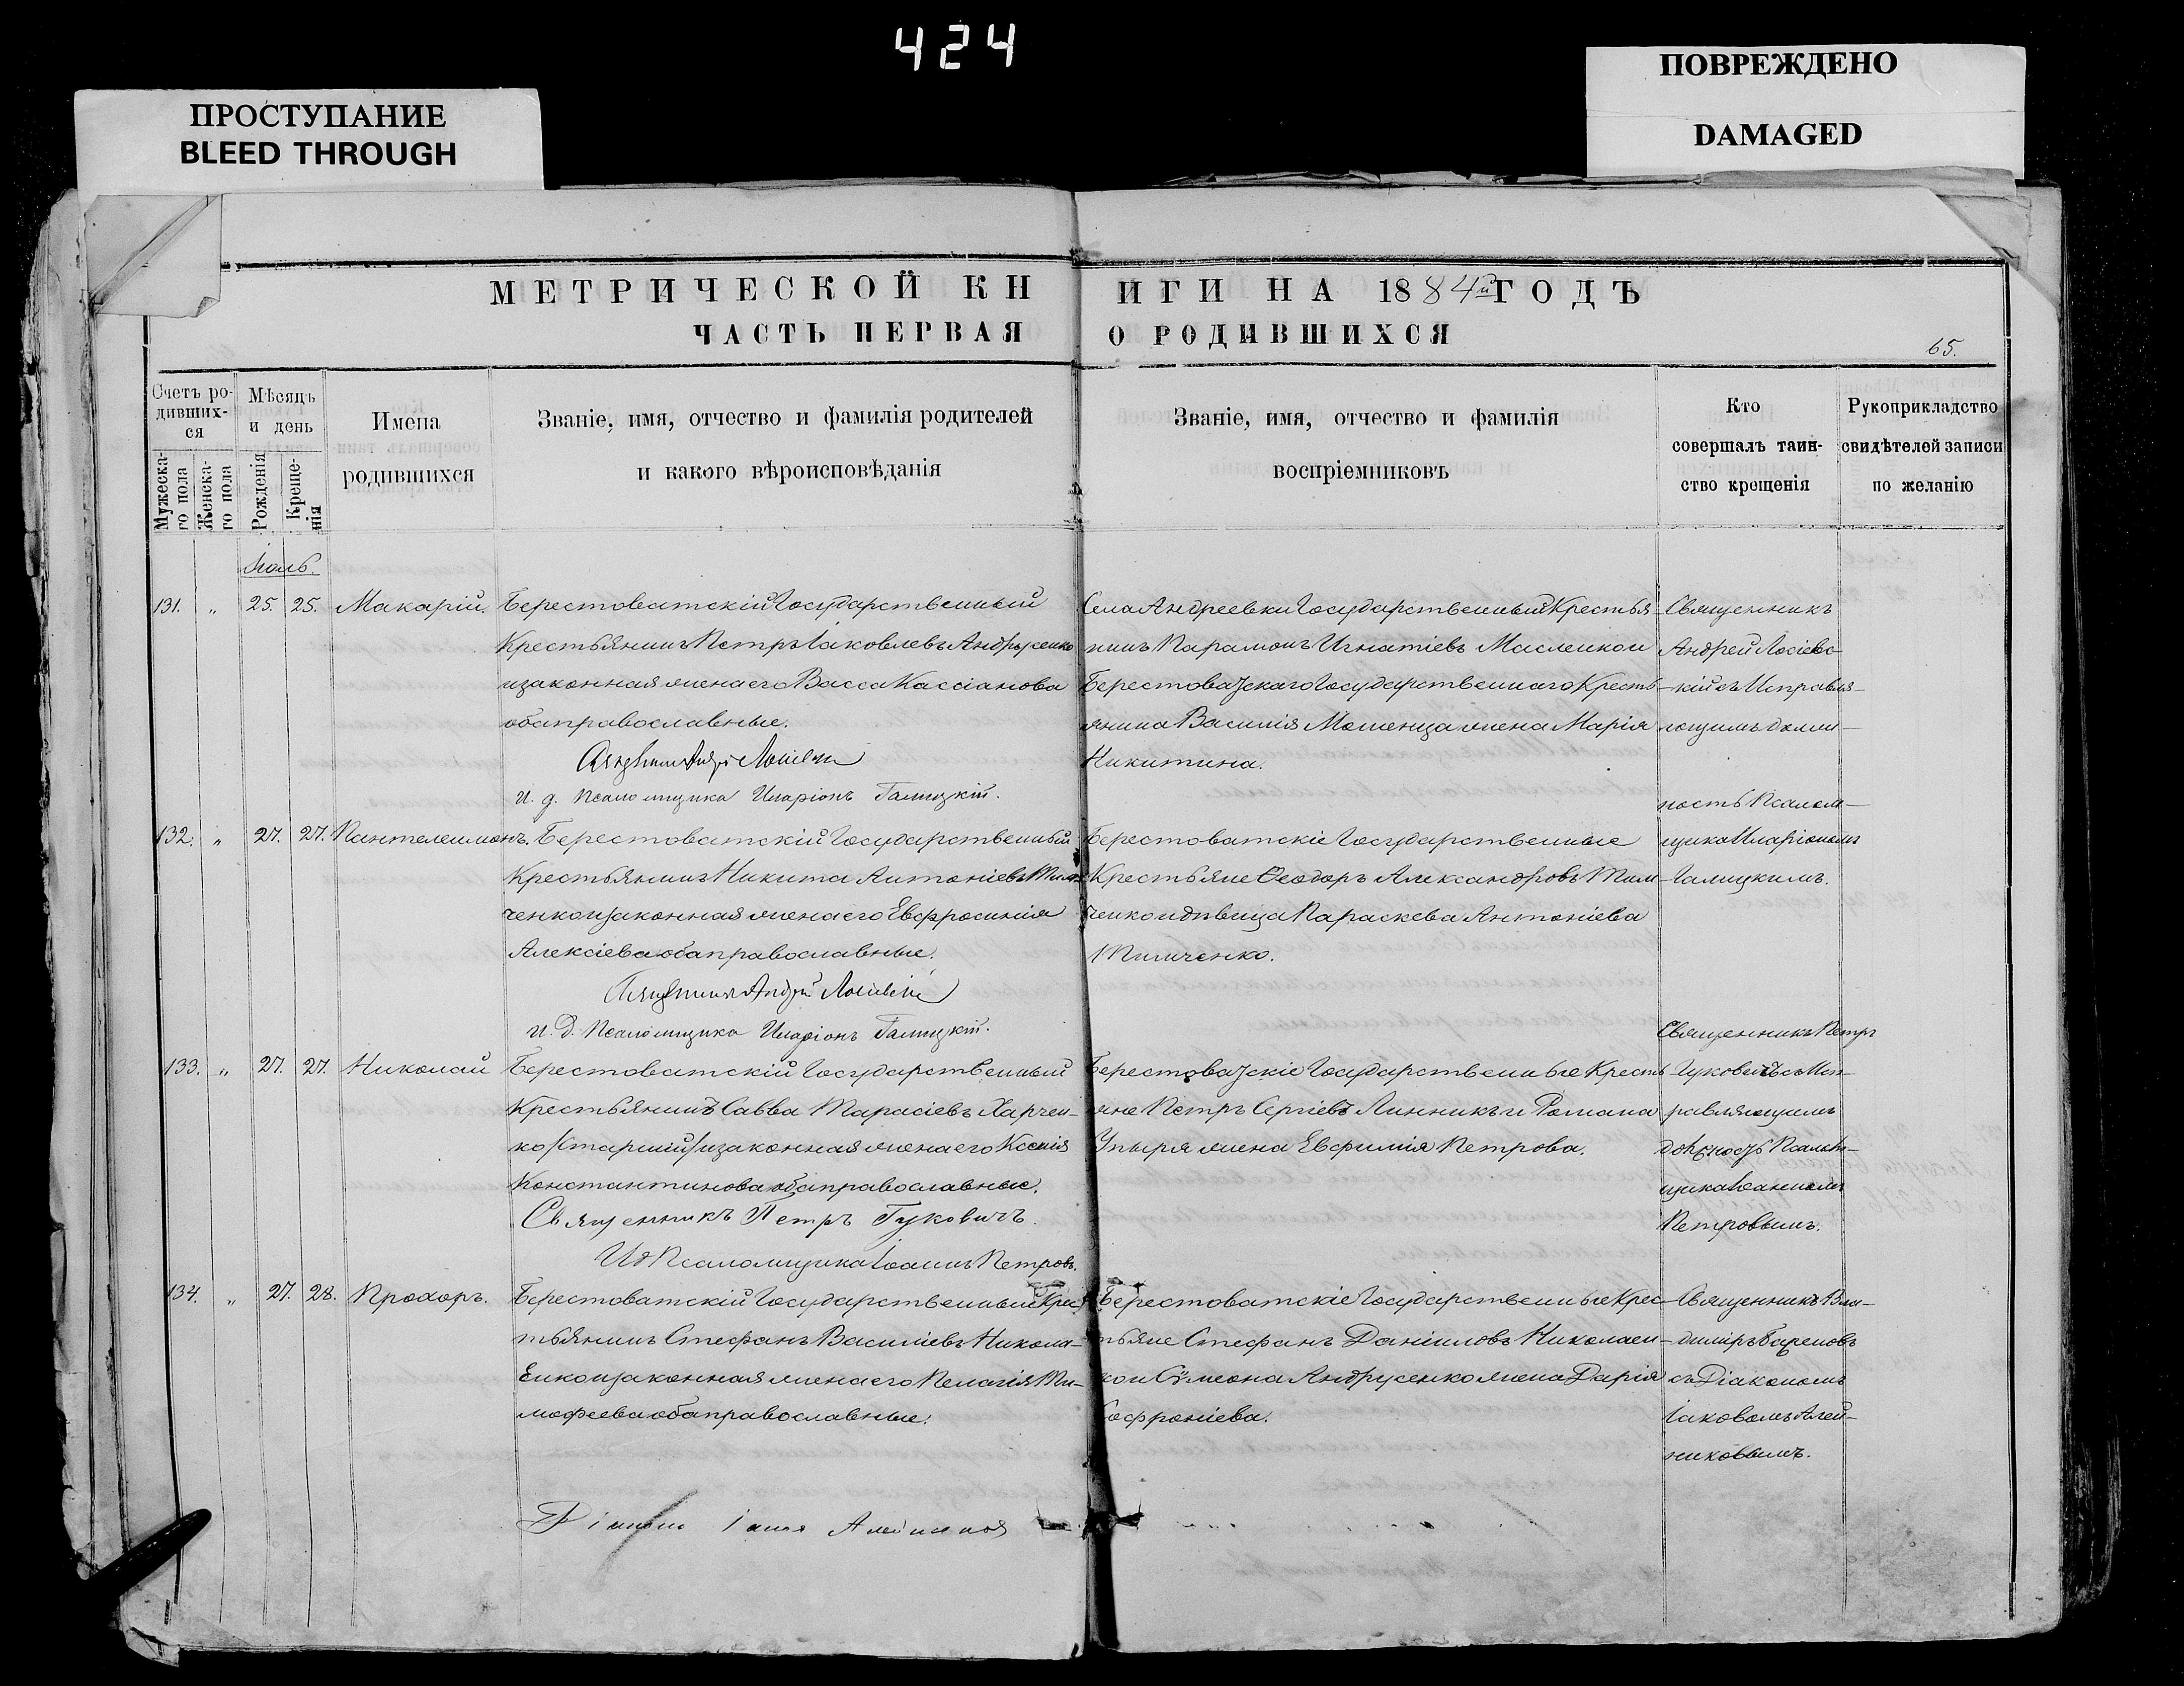 424
ПРОСТУПАНИЕ
BLEED THROUGH
ПОВРЕЖДЕНО
DAMAGED
МЕТРИЧЕСКОЙ КНИГИ НА 1884й ГОДЪ
ЧАСТЬ ПЕРВАЯ О РОДИВШИХСЯ
65.
Счетъ ро-
дивших-
ся
Мужеска-
го пола
Женска-
го пола
Мѣсяцъ
и день
Рожденія
Креще-
нія
Имена
родившихся
Званіе, имя, отчество и фамилія родителей
и какого вѣроисповѣданія
Званіе, имя, отчество и фамилія
воспріемниковъ
Кто
совершалъ таин-
ство крещенія
Рукоприкладство
свидѣтелей записи
по желанію
Іюль.
131. " 25. 25. Макарій.
Берестоватскій Государственный
Крестьянинъ Петръ Іаковлевъ Андрусенко
и законная жена его Васса Кассіанова
оба православные.
Священникъ Андрей
И. д. Псаломщика Иларіонъ Галицкій.
Села Андреевки Государственный Крестья-
нинъ Парамонъ Игнатіевъ Масленко и
Берестоватскаго Государственнаго Кресть-
янина Василія жена Марія
Никитина.
Священникъ
Андрей Лосіевс-
кій съ Исправля-
ющимъ долж-
ность Псалом-
щика Иларіономъ
Галицкимъ.
132. " 27. 27. Пантелеимонъ.
Берестоватскій Государственный
Крестьянинъ Никита Антоніевъ
ченко и законная жена его Евфросинія
Алексіева оба православные.
Священникъ Андрей
И. д. Псаломщика Иларіонъ Галицкій.
Берестоватскіе Государственные
Крестьяне Ѳеодоръ Александровъ Тим-
ченко и дѣвица Параскева Антоніева
Тимченко.
133. " 27. 27. Николай
Берестоватскій Государственный
Крестьянинъ Савва Тарасіевъ Харчен-
ко /старшій/ и законная жена его Ксенія
Константинова оба православные.
Священникъ Петръ Гуковичъ.
ИД Псаломщика Іоаннъ Петровъ.
Берестоватскіе Государственные Кресть-
яне Петръ Сергіевъ Линникъ и Романа
Упыря жена Евфимія Петрова.
Священникъ Петръ
Гуковичъ съ Исп-
равляющимъ
должность Псалом-
щика Іоанномъ
Петровымъ.
134. " 27. 28. Прохоръ.
Берестоватскій Государственный Крес-
тьянинъ Стефанъ Василіевъ Никола-
Енко и законная жена его Пелагія Ти-
мофеева оба православные.
Діаконъ
Берестоватскіе Государственные Крес-
тьяне Стефанъ Даніиловъ Николаен-
ко и Сѵмеона Андрусенко жена Дарія
Софроніева.
Священникъ Вла-
диміръ
съ Діакономъ
Іаковомъ Алей-
никовымъ.